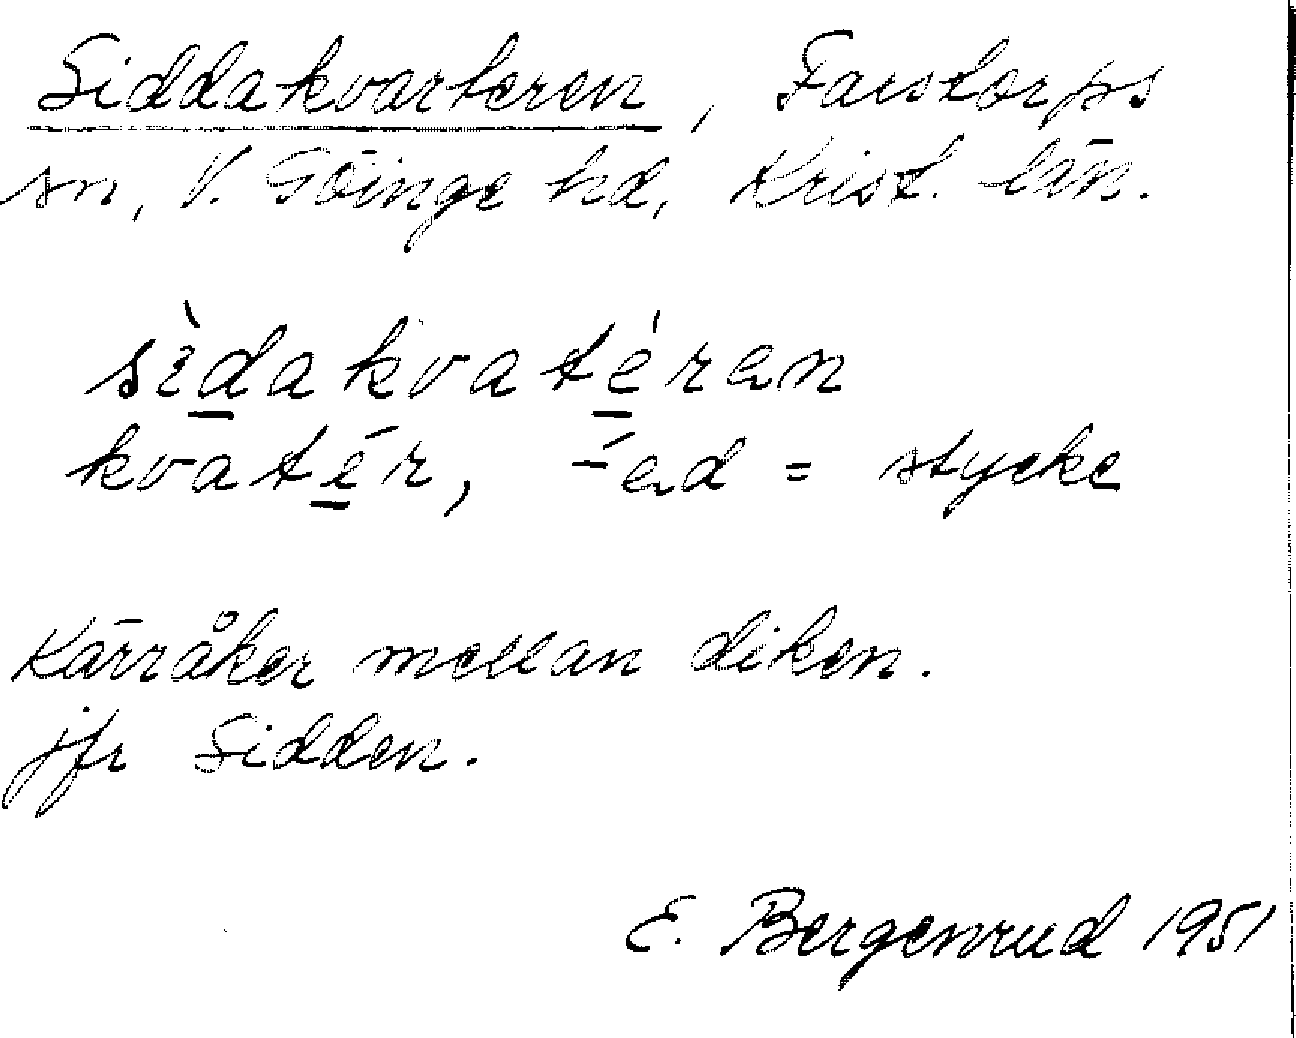 Siddakvarteren, Farstorps
sn, V. Göinge hd, Krist. län.
sìdakvatéran
kvatér, -́ad = stycke
Kärråker mellan diken.
jfr Sidden.
E. Bergenrud 1951